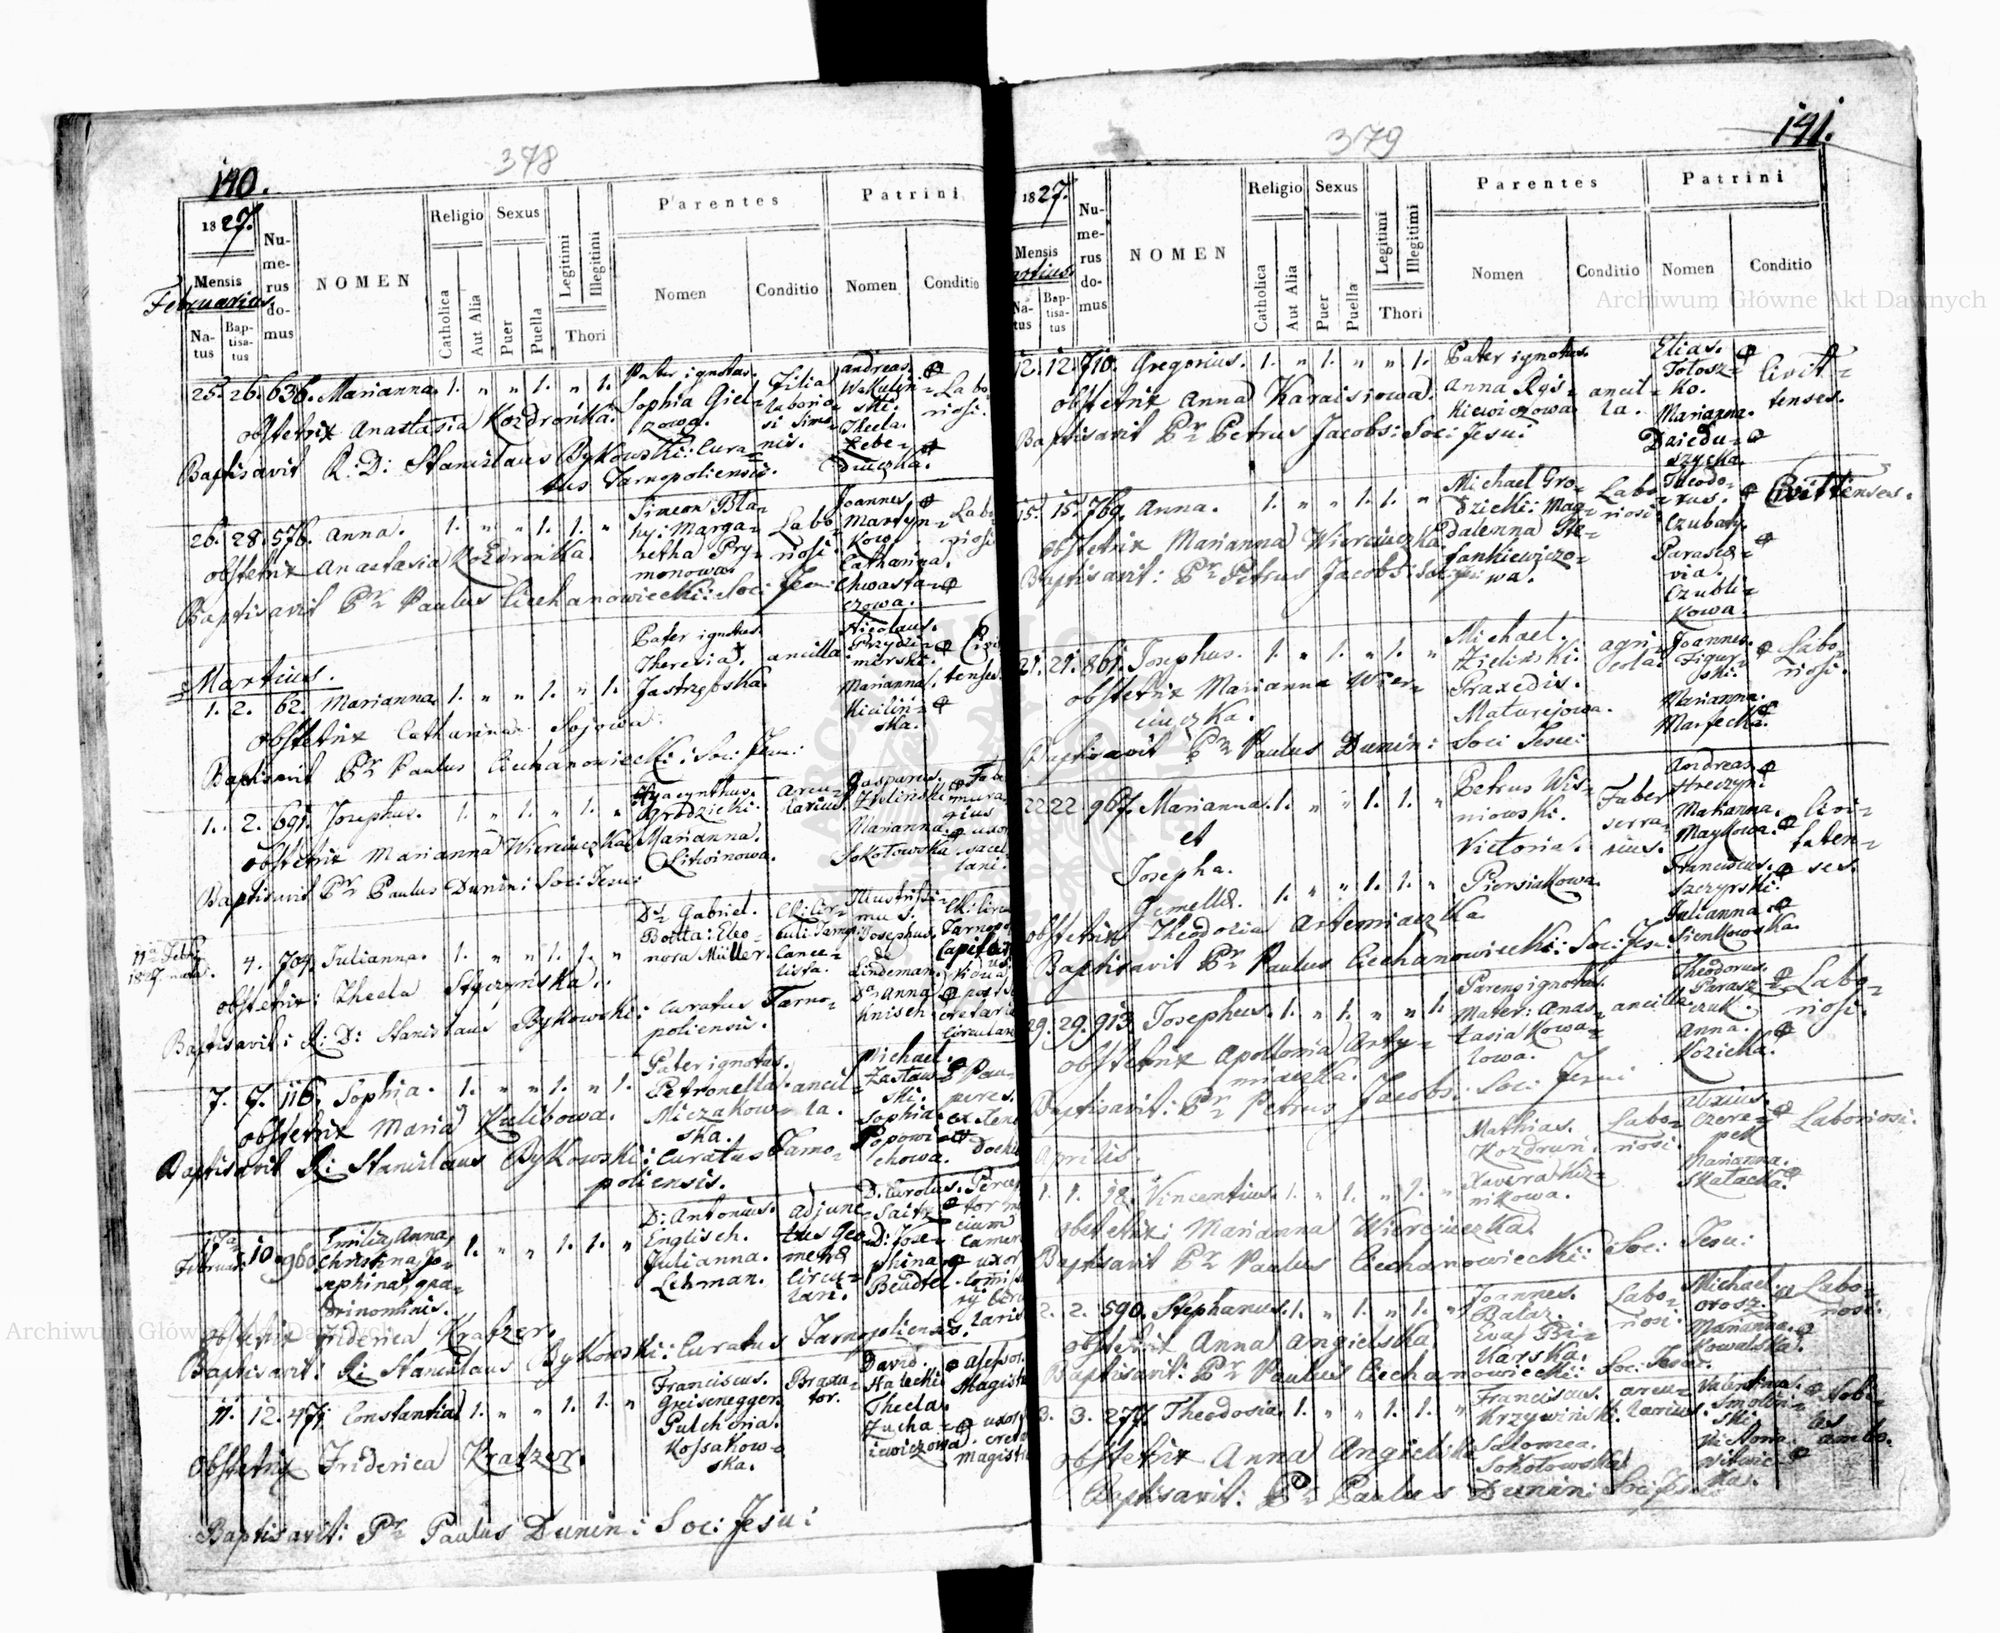 140.
378
1827.
Mensis
Februarius
Natus
Baptisatus
Numerus domus
NOMEN
Religio
Catholica
Aut Alia
Sexus
Puer
Puella
Legitimi
Illegitimi
Thori
Parentes
Nomen
Conditio
Patrini
Nomen
Conditio
25. 26. 636. Marianna. 1. " " 1. " 1.
Pater ignotus.
Sophia Giel-
zowa.
Filia
laborio-
si Simo-
nis.
Andreas
Wakulin-
ski.
Thecla.
Zebe-
Labo-
riosi.
obstetrix Anastasia Kozdrońka.
Baptisavit R: D: Stanislaus Bykowski: Cura-
tus Tarnopoliensis.
26. 28. 576. Anna. 1. " " 1. 1. "
Simeon Bla-
hy: Marga-
retha Pry-
monowa.
Labo-
riosi.
Joannes
Martyn-
Kow.
Catharina.
Chwasta-
czowa.
Labo-
riosi
obstetrix Anastasia Kozdrońka.
Baptisavit Pr Paulus Ciechanowiecki: Soc: Jesu:
Martius.
1. 2. 62. Marianna. 1. " " 1. " 1.
Pater ignotus.
Theresia
Jastrzębska.
ancilla
Nicolaus.
Marianna.
Kicilin-
ska.
obstetrix Catharina Sojowa.
Baptisavit Pr Paulus Ciechanowiecki: Soc: Jesu:
1. 2. 691. Josephus. 1. " 1. " 1. "
Hyacynthus.
Grodzicki.
Marianna.
Litwinowa.
arcu-
larius.
Gasparus.
Zieliński
Marianna.
Sokołowska
obstetrix Marianna Wierciuczka
Baptisavit Pr Paulus Dunin: Soc: Jesu:
4. 704. Julianna. 1. " " 1. 1. "
Ds Gabriel.
Botta: Eleo-
nora Müller.
Cance-
lista.
Illustrissi-
mus.
Josephus.
de
Lindeman.
Da Anna
Knisch
obstetrix: Thecla Styczyńska.
Baptisavit: R: D: Stanislaus Bykowski: Curatus Tarno-
poliensis.
7. 7. 116. Sophia. 1. " " 1. " 1.
Pater ignotus.
Petronella
Miczakow-
ska.
ancil-
la.
Michael.
Zastaw-
ski.
Sophia.
Popowi-
chowa.
Pau-
peres.
obstetrix Maria Kulibowa.
Baptisavit R: Stanislaus Bykowski: Curatus Tarno-
poliensis.
10 960.
Emilia, Anna,
Christina, Jo-
sephina, qua-
drinominis.
1. " " 1. 1. "
D: Antonius.
Englisch.
Julianna.
Lehman.
adjunc-
tus Geo-
metræ
Circu-
lari.
D. Carolus.
Saitz
D: Jose-
phina
obstetrix Friderica Kratzer.
Baptisavit: R: Stanislaus Bykowski: Curatus Tarnopoliensis.
11. 12. 471. Constantia 1. " " 1. 1. "
Franciscus.
Greisenegger.
Pulcheria.
Kossakow-
ska.
Braxa-
tor.
David.
Thecla.
Zucha-
iewiczowa.
obstetrix Friderica Kratzer.
Baptisavit: Pr Paulus Dunin: Soc: Jesu:
379
141.
1827.
Mensis
Numerus domus
NOMEN
Religio
Catholica
Aut Alia
Sexus
Puer
Puella
Legitimi
Illegitimi
Thori
Parentes
Nomen
Conditio
Patrini
Nomen
Conditio
12. 12. 710. Gregorius. 1. " 1. " " 1.
Pater ignotus.
Anna Rys-
kiewiczowa
ancil-
la.
Elias.
Tołosz-
ko.
Marianna.
Dziedu-
szycka.
Civit-
tenses.
obstetrix Anna Karaisiowa.
Baptisavit Pr Petrus Jacobs: Soc: Jesu:
15. 15. 769. Anna. 1. " " 1. 1. "
Michael Gro-
dzicki: Mag-
dalenna Ste-
fankiewiczo-
wa.
Labo-
riosi
Theodo-
rus.
Czubaty.
Parasce-
via.
Czubli-
kowa
Civittenses.
obstetrix Marianna Wierciuczka
Baptisavit: Pr Petrus Jacobs: Soc: Jesu:
21. 21. 861. Josephus. 1. " 1. " 1. "
Michael.
Zieliński.
Praxedis.
Maturejowa.
agri-
cola.
Joannes.
Figur-
ski.
Marianna.
Marfecka.
Labo-
riosi.
obstetrix Marianna Wier-
ciuczka.
Baptisavit Pr Paulus Dunin: Soci Jesu:
22 22. 967. Marianna. 1. " " 1. 1. "
et
Josepha.
Gemellæ. 1. " " 1. 1. "
Petrus Wis-
niowski.
Victoria.
Piersiakowa.
Faber
serra-
rius.
Andreas.
Hreczyn
Marianna.
Maykowa.
Franciscus.
Szczyrski.
Julianna
Sienkowska.
Civi-
taten-
ses.
obstetrix Theodozia Artemiaczka.
Baptisavit Pr Paulus Ciechanowiecki: Soc: Jesu:
29. 29. 913. Josephus. 1. " 1. " " 1.
Parens ignotus.
Mater: Anas-
tasia Kowa-
lowa.
ancilla
Theodorus.
Parasz-
czuk.
Anna.
Kozicka.
Labo-
riosi.
obstetrix Apollonia Anty-
miaczka.
Baptisavit: Pr Petrus Jacobs: Soc: Jesu:
Aprilis.
1. 1. 18. Vincentius. 1. " 1. " 1. "
Mathias.
Kozdruń
Xavera Kuz-
nikowa.
Labo-
riosi.
Alexius.
Czere-
pek
Marianna.
Skałacka.
Laboriosi.
obstetrix: Marianna Wierciuczka.
Baptisavit Pr Paulus Ciechanowiecki: Soc: Jesu:
2. 2. 590. Stephanus. 1. " 1. " 1. "
Joannes.
Balaz.
Eva Pi-
karska.
Labo-
riosi
Michael
orosz.
Marianna.
Kowalska.
Labo-
riosi.
obstetrix Anna Angielska.
Baptisavit: Pr Paulus Ciechanowiecki: Soc: Jesu:
3. 3. 277. Theodosia. 1. " " 1. 1. "
Franciscus.
Krzywiński.
Salomea.
Sokołowska
arcu-
larius.
Valentinus.
Smolin-
ski.
Victoria.
Witwic-
ka.
Nobi-
les
ambo.
obstetrix Anna Angielska
Baptisavit: Pr Paulus Dunin: Soc: Jesu:
Archiwum Główne Akt Dawnych
Archiwum Główne Akt Dawnych